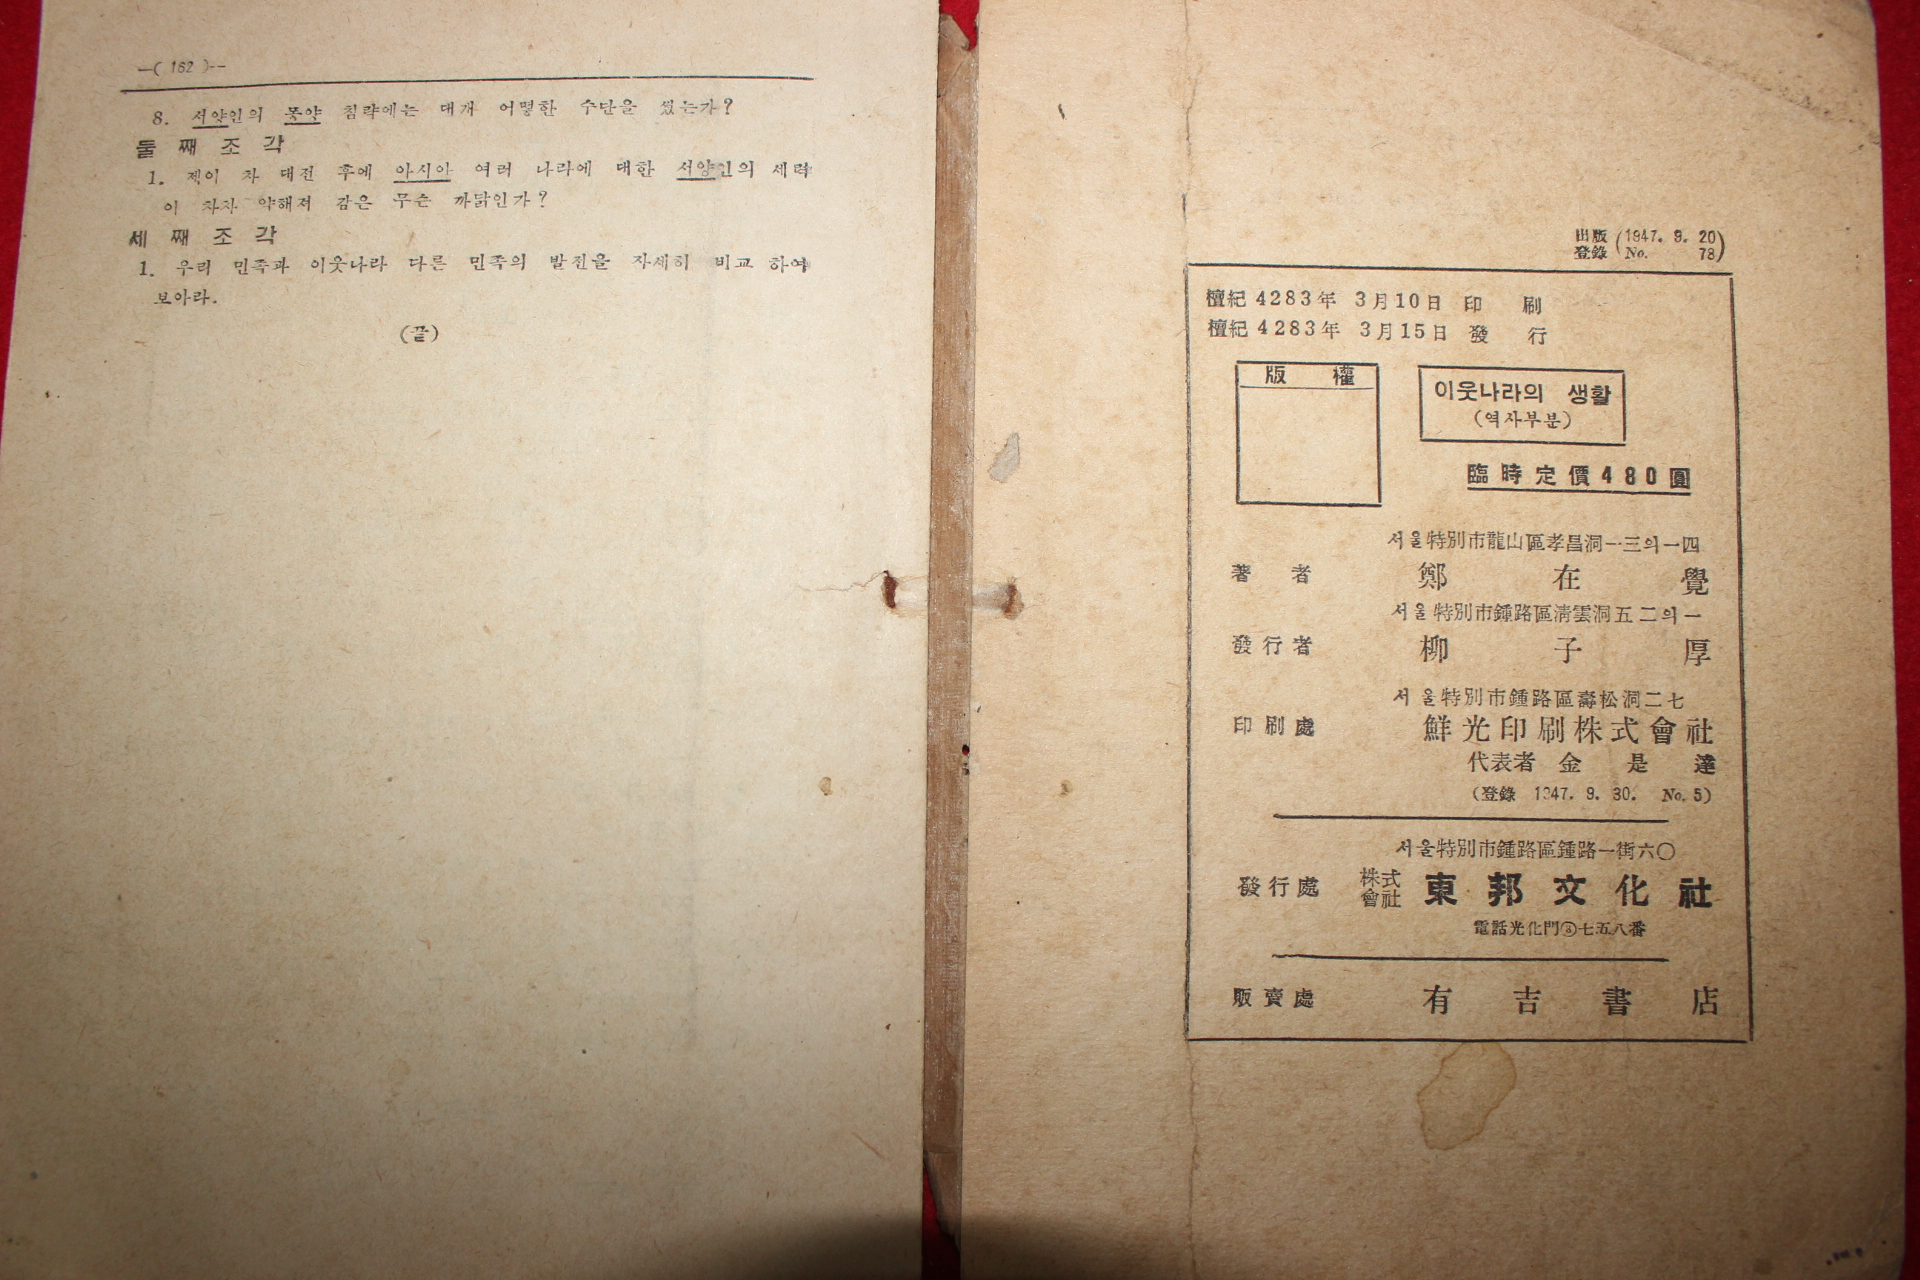 —( 162 )—
8. 서양인의 동양 침략에는 대개 어떻한 수단을 썼는가?
둘 째 조 각
1. 젝이 차 대전 후에 아시아 여러 나라에 대한 서양인의 세력
이 차차 약해져 감은 무슨 까닭인가?
세 째 조 각
1. 우리 민족과 이웃나라 다른 민족의 발전을 자세히 비교 하여
보아라.
(끝)
出版登錄 (1947. 9. 20 No. 78)
檀紀 4283年 3月10日 印 刷
檀紀 4283年 3月15日 發 行
版 權
이웃나라의 생활
(역사부분)
臨時定價480圓
서울特別市龍山區孝昌洞一三의一四
著 者 鄭 在 覺
서울特別市鍾路區淸雲洞五二의一
發行者 柳 子 厚
서울特別市鍾路區壽松洞二七
印刷處 鮮光印刷株式會社
代表者 金 是 達
(登錄 1947. 9. 30. No. 5)
서울特別市鍾路區鍾路一街六〇
發行處 株式會社 東邦文化社
電話光化門③七五八番
販賣處 有吉書店